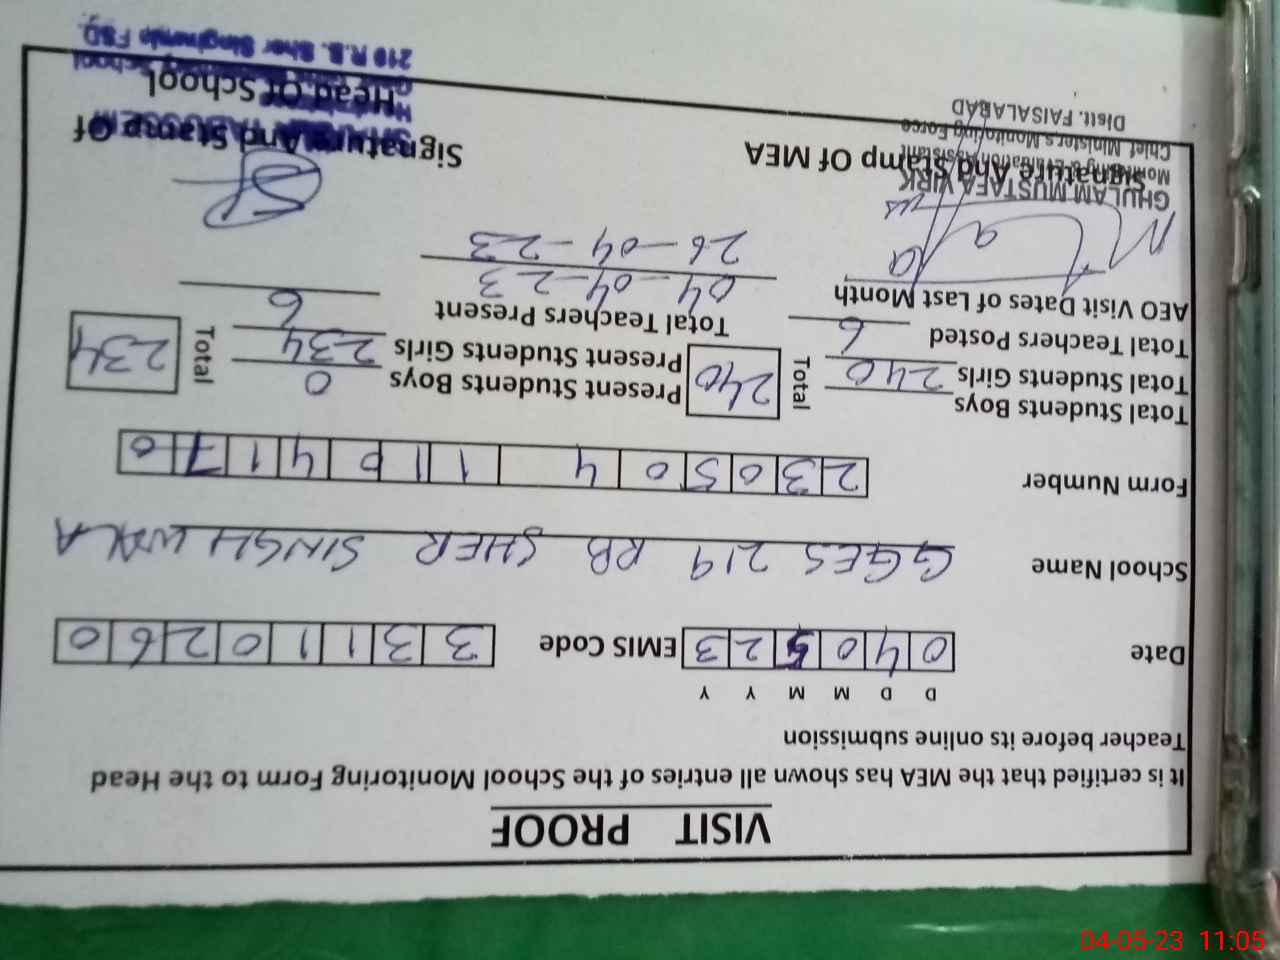 VISIT PROOF
It is certified that the MEA has shown all entries of the School Monitoring Form to the Head
Teacher before its online submission
D D M M Y Y
Date 0 4 0 5 2 3 EMIS Code 3 3 1 1 0 2 6 0
School Name GGES 219 RB SHER SINGH WALA
Form Number 2 3 0 5 0 4 1 1 0 4 1 7 0
Total Students Boys Total 240 Present Students Boys 0 Total 234
Total Students Girls 240 Present Students Girls 234
Total Teachers Posted 6 Total Teachers Present 6
AEO Visit Dates of Last Month 04-04-23
26-04-23
GHULAM MUSTAFA VIRK
Signature And Stamp Of MEA Signature And Stamp Of
Monitoring & Evaluation Assistant
Chief Ministers Monitoring Force
Distt. FAISALABAD
Head Of School
219 R.B. Sher Singhwala FSD.
04-05-23 11:05